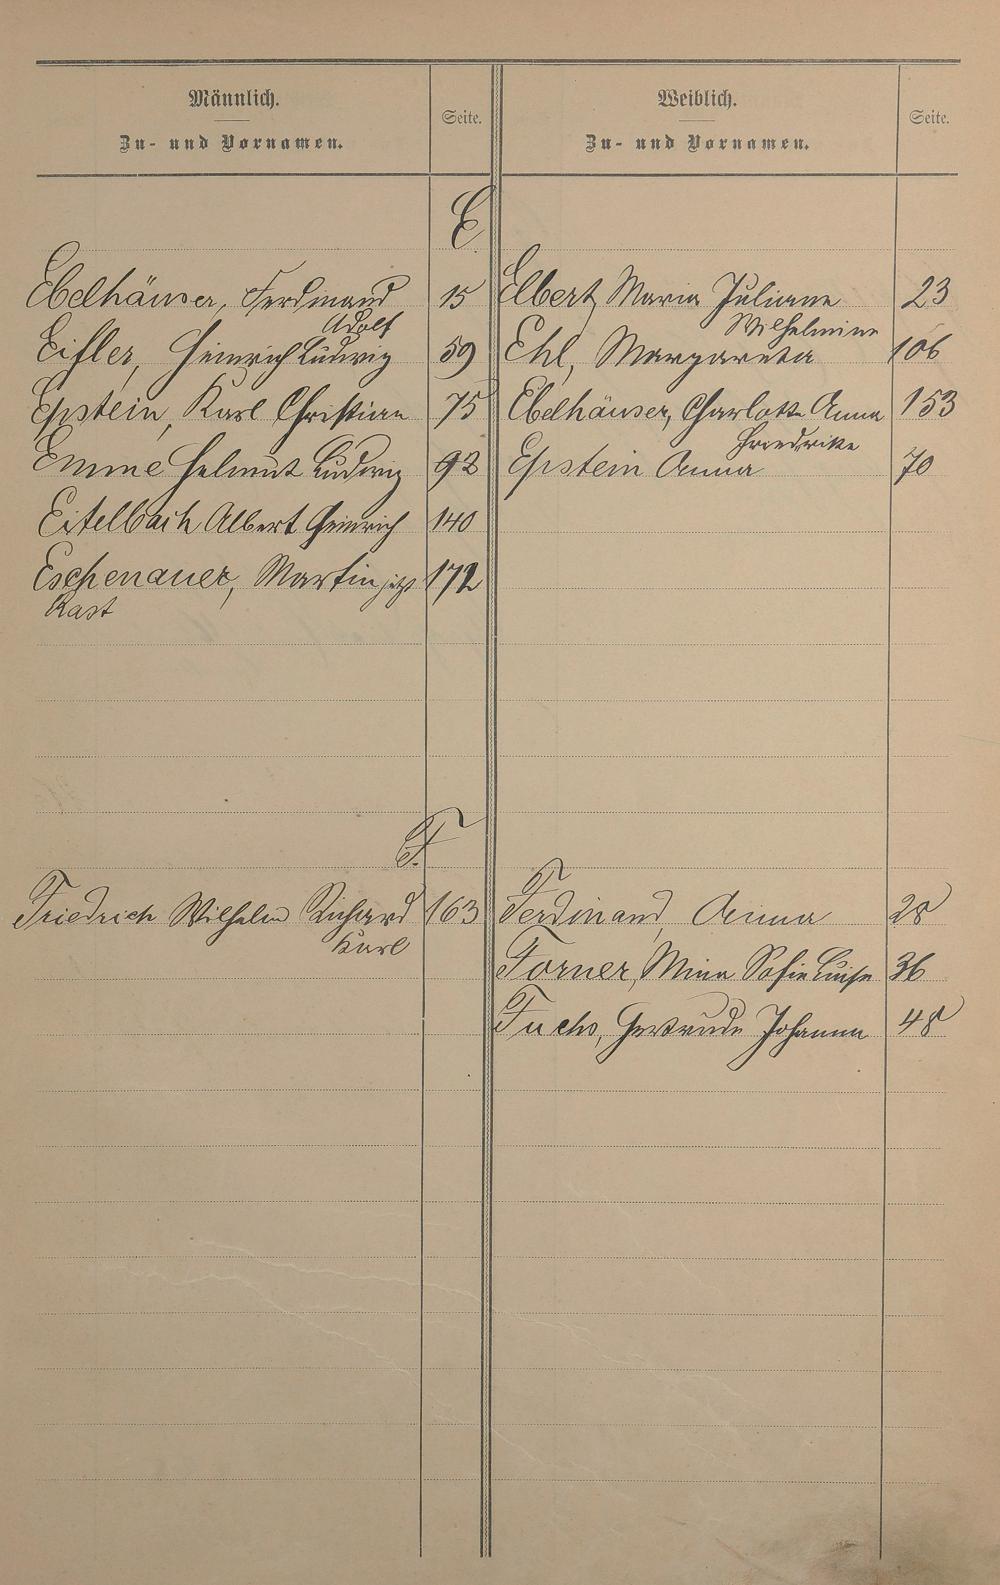 Männlich.
Zu- und Vornamen.
Seite.
Weiblich.
Zu- und Vornamen.
Seite.
E.
Ebelhäuser, Ferdinand 15
Adolf
Eifler, Heinrich Ludwig 59
Epstein, Karl Christian 75
Emme Helmut Ludwig 92
Eitelbach Albert Heinrich 140
Eschenauer, Martin jetzt 172
Rast
Elbert, Maria Juliane 23
Wilhelmine
Ehl, Margareta 106
Ebelhäuser, Charlotte Anna 153
Friedricke
Epstein Anna 70
F.
Friedrich Wilhelm Richard 163
Karl
Ferdinand, Anna 28
Forner, Mina Sofie Luise 36
Fuchs, Gertrude Johanna 48